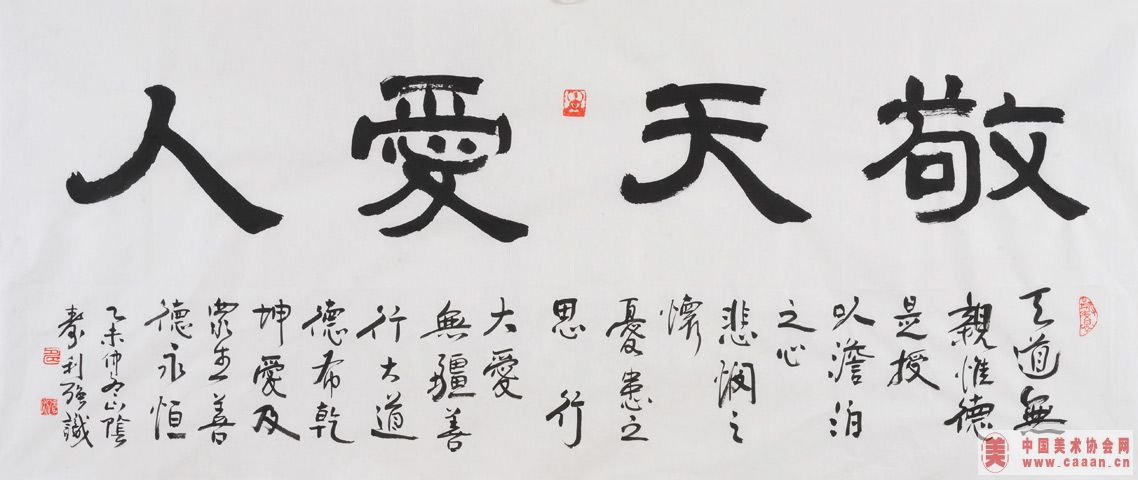 敬天愛人
天道無
親惟德
是授
以澹泊
之心
悲憫之
懷
憂患之
思 行
大愛
無疆善
行大道
德布乾
坤愛及
眾生善
德永恒
乙未仲冬山陰
壽利強識
美 中国美术协会网
www.caaan.cn